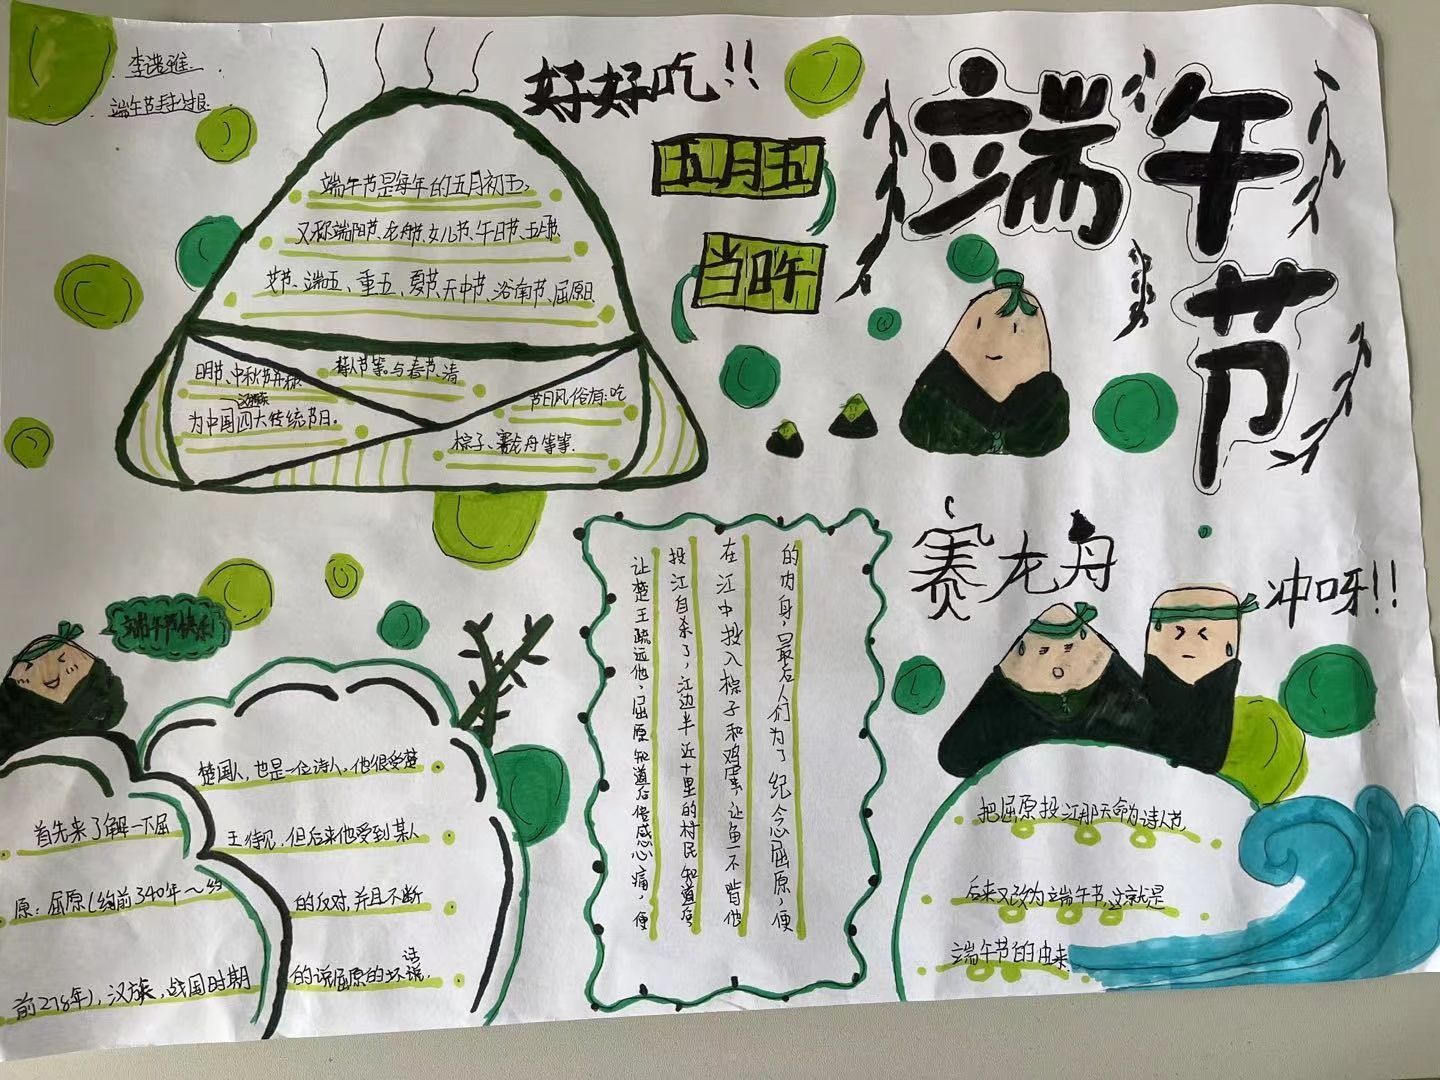 李诺雅
端午节手抄报
好好吃!!
五月五
当吽
端午节
端午节是每年的五月初五,
又称端阳节、龙舟节、女儿节、午日节、五月节
艾节、端五、重五、夏节、天中节、浴南节、屈原日
日月节、中秋节并称
汉族
为中国四大传统节日。
诗人节等。与春节、清
节日风俗有:吃
粽子、赛龙舟等等.
赛龙舟
冲呀!!
端午节快乐!
首先来了解一下屈
原:屈原(约前340年～约
前278年),汉族,战国时期
楚国人,也是一位诗人,他很受楚
王待见,但后来他受到某人
的反对,并且不断
话
的说屈原的坏谎.
让楚王疏远他,屈原知道后倍感心痛,便
投江自杀了,江边半近十里的村民知道后
在江中投入粽子和鸡蛋,让鱼不啃他
的肉身,最后人们为了纪念屈原,便
把屈原投江那天命为诗人节,
后来又改为端午节,这就是
端午节的由来.